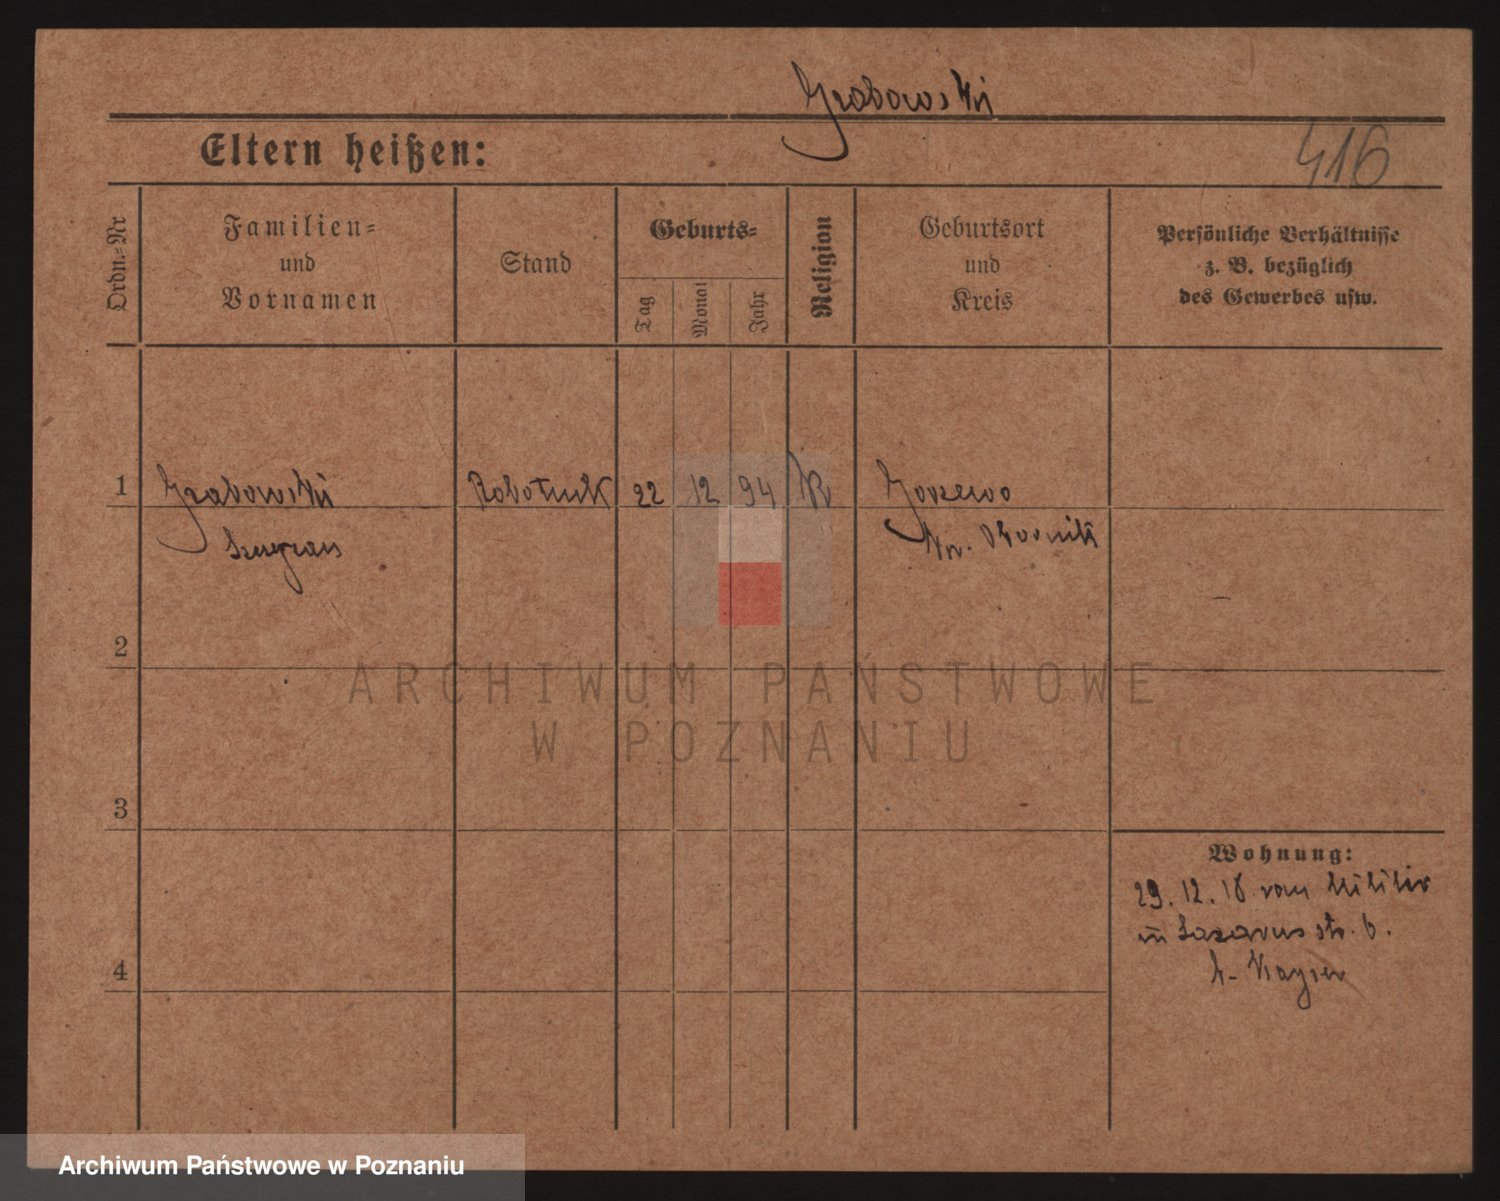 Grabowski
Eltern heißen:
416
Ordn.-Nr
Familien-
und
Vornamen
Stand
Geburts-
Tag
Monat
Jahr
Religion
Geburtsort
und
Kreis
Persönliche Verhältnisse
z. B. bezüglich
des Gewerbes usw.
1 Grabowski Robotnik 22 12 94 K Gorzewo
Kr. Obornik
2
3
4
Wohnung:
29. 12. 18 vom Militär
in Lazarus str. 6.
b. Kayser
ARCHIWUM PAŃSTWOWE
W POZNANIU
Archiwum Państwowe w Poznaniu